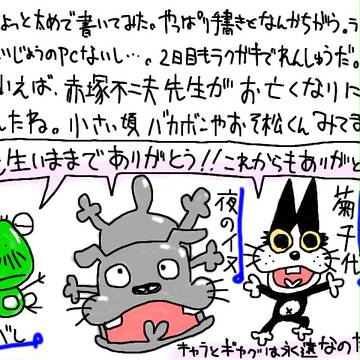 ょっと太めで書いてみた。やっぱり手書きとなんかちがう。ラ
いじょうのPCないし…。2日目もラクガキでれんしゅうだ。
いえば、赤塚不二夫先生がお亡くなりに
したね。小さい頃バカボンやおそ松くんみてま
生いままでありがとう!!これからもありがと
夜のイヌ
菊千代
べし
キャラとギャグは永遠なのだ